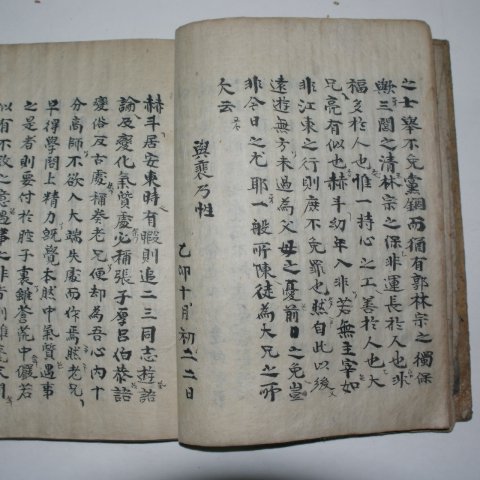 之士擧不免黨錮而獨有郭林宗之獨保
與三閭之清林宗之保非運長於人也非
福多於人也惟一持心之工善於人也大
兄亮有似也赫斗幼年入非若無主宰如
非江東之行則庶不免罪也然自此以後
遠遊無方未過為父母之憂前日之免豈
非今日之尤耶一般所陳徒為大兄之所
大云
與裵乃性
乙卯十月初二日
赫斗居安東時有暇則追二三同志遊語
論及變化氣質處必稱張子厚呂伯恭語
變俗反古處稱秦老兄便却為吾心內十
分高師不欲入大端失處而作焉然老兄
早得學問上精力頗覺本然中氣質遇事
之是者則要付於腔子裏雖蒼荒中儼若